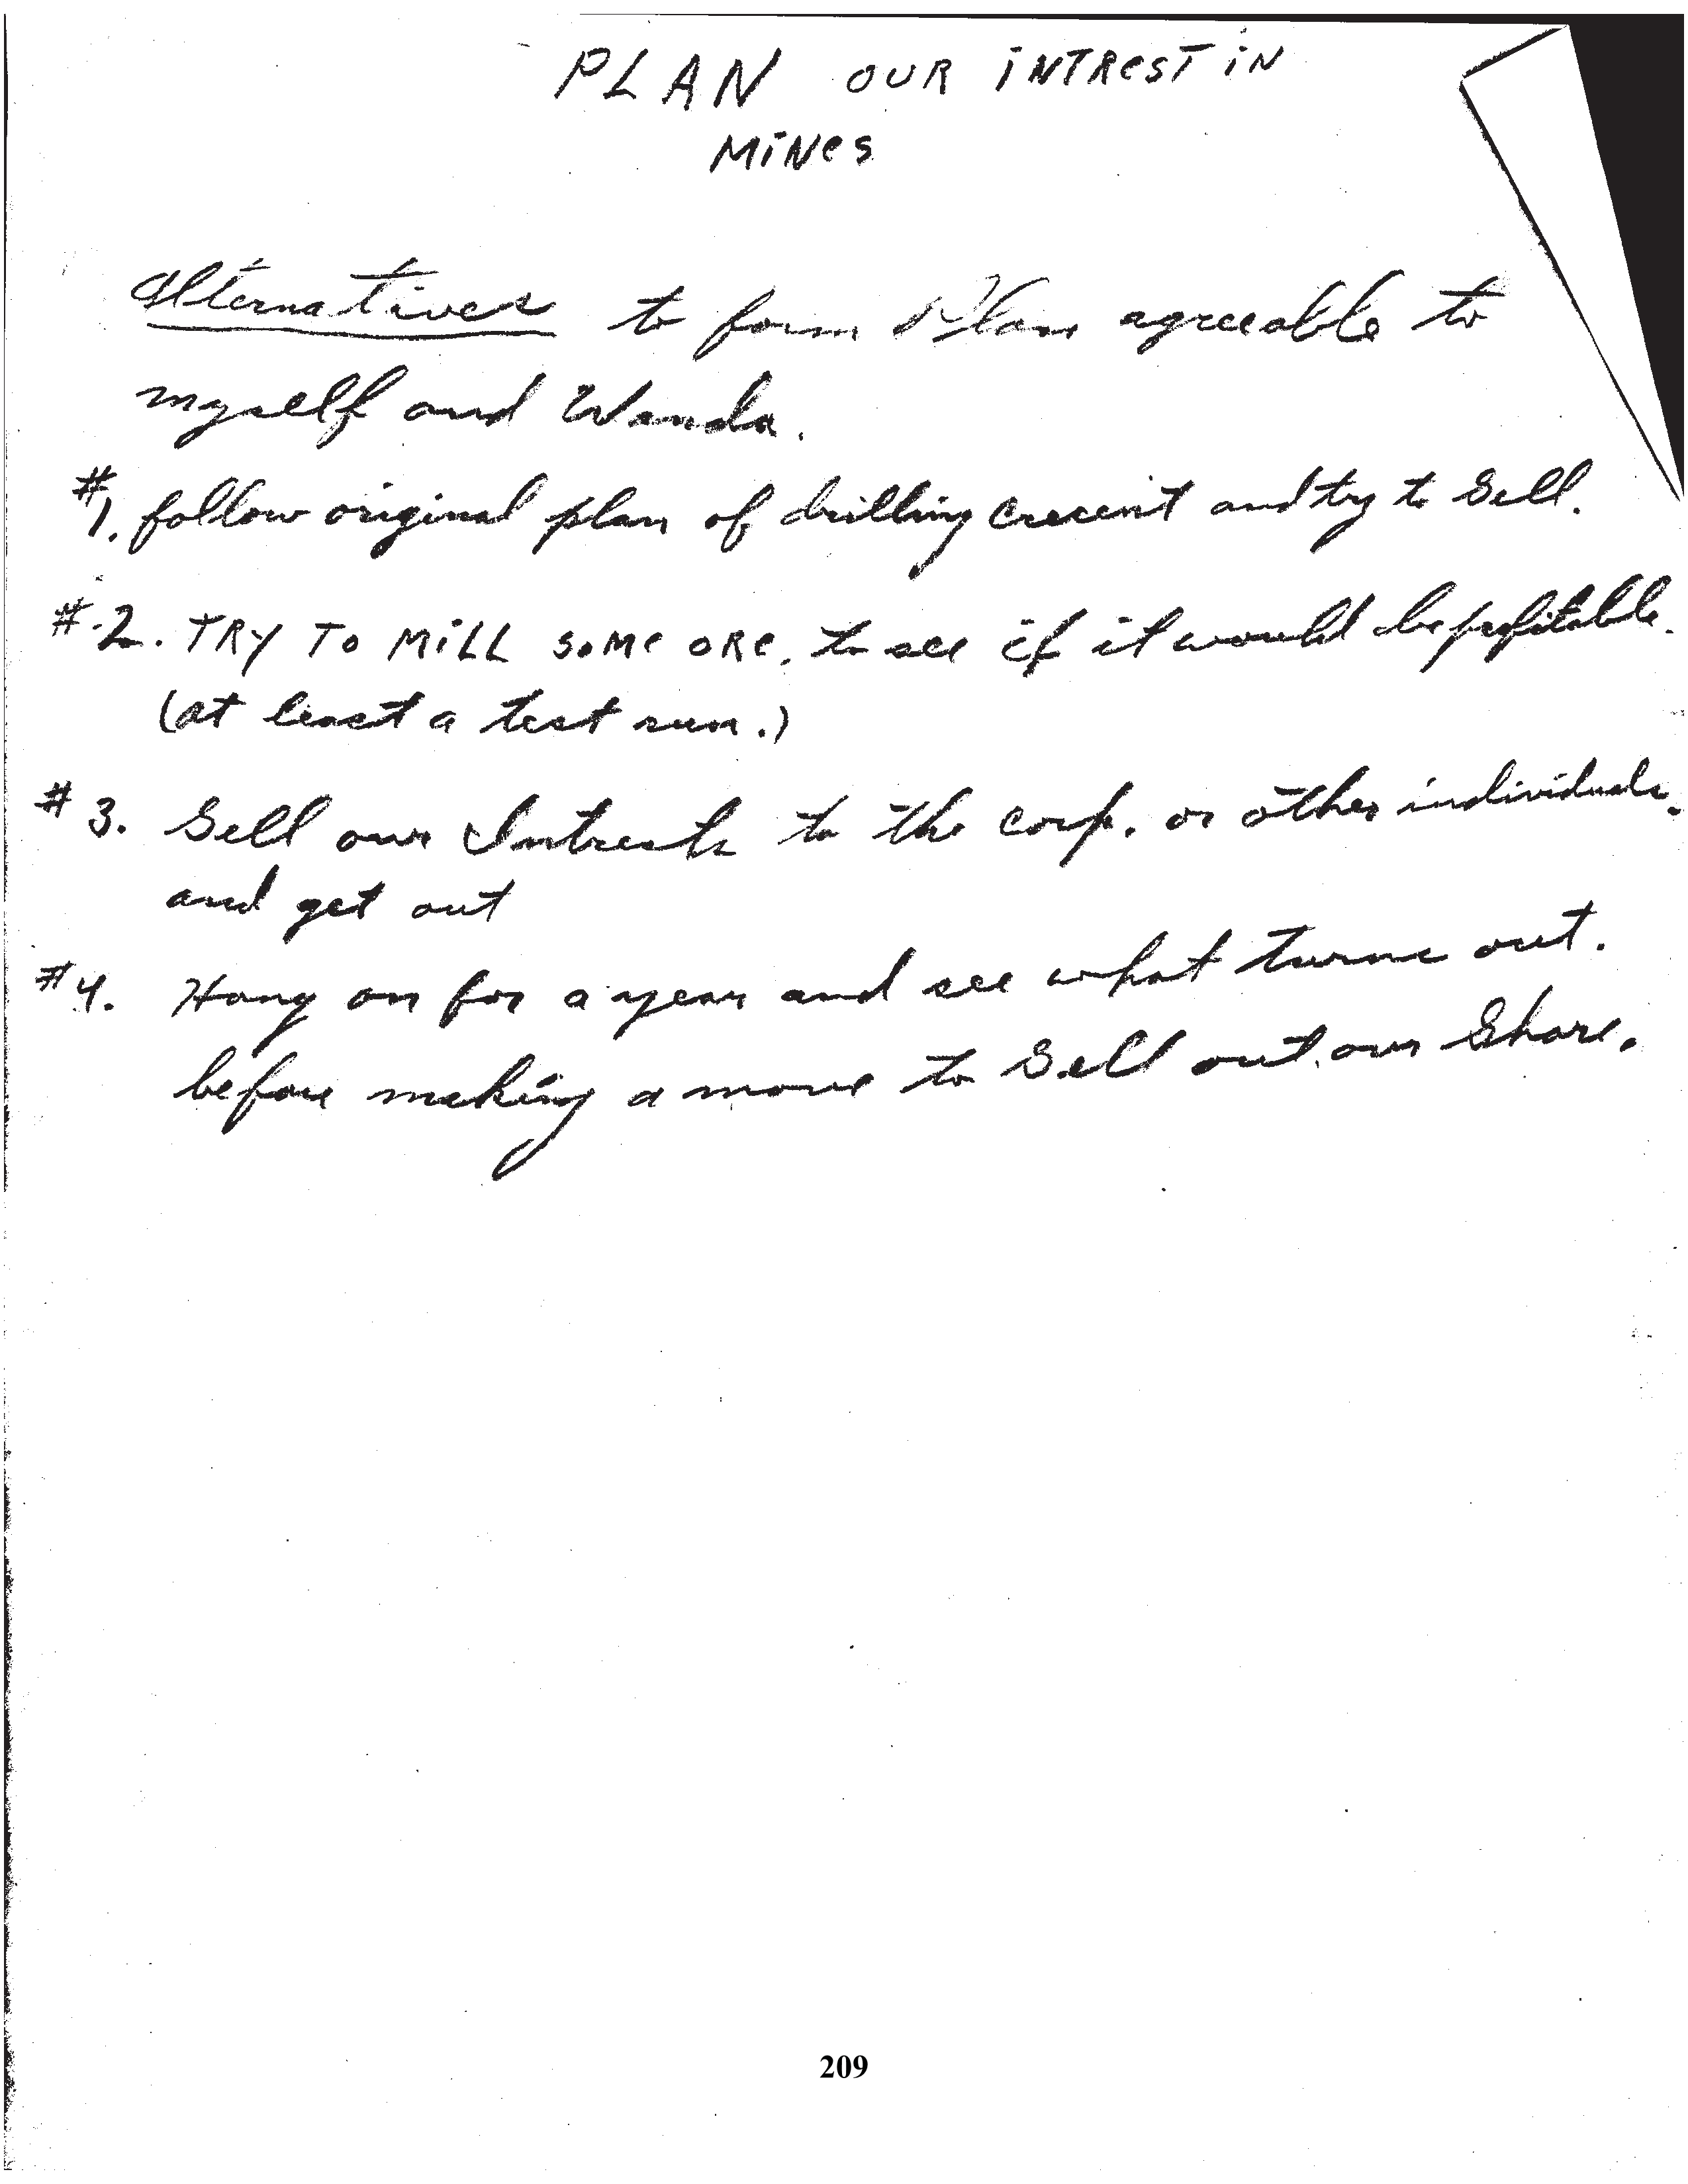 PLAN OUR INTREST IN
MINES
Alternatives to form Plan agreeable to
myself and Wanda.
#1. follow original plan of drilling Crecent and try to Sell.
#2. TRY TO MILL SOME ORE, to see if it would be profitable.
(at least a test run.)
#3. Sell our Intrests to the corp. or other individuals.
and get out
#4. Hang on for a year and see what turns out.
before making a move to Sell out our Share.
209